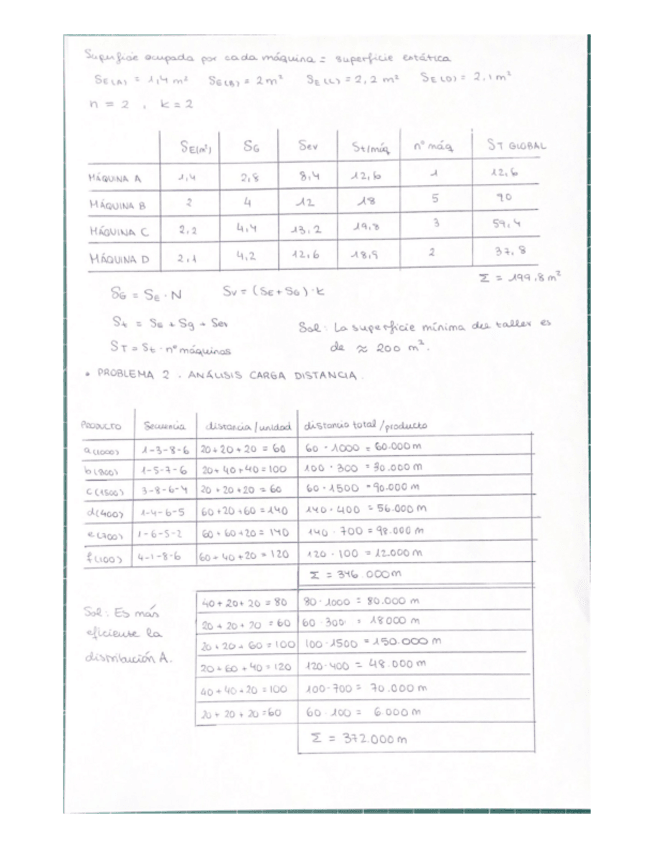 Superficie ocupada por cada máquina = superficie estática
SE(A) = 1,4 m² SE(B) = 2 m² SE(C) = 2,2 m² SE(D) = 2,1 m²
n = 2 , k = 2
SE(m²) SG Sev St/máq nº máq ST GLOBAL
MÁQUINA A 1,4 2,8 8,4 12,6 1 12,6
MÁQUINA B 2 4 12 18 5 90
MÁQUINA C 2,2 4,4 13,2 19,8 3 59,4
MÁQUINA D 2,1 4,2 12,6 18,9 2 37,8
Σ = 199,8 m²
SG = SE · N Sv = (SE + SG) · k
St = Se + Sg + Sev
Sol: La superficie mínima del taller es
ST = St · nº máquinas
de ≈ 200 m².
• PROBLEMA 2. ANÁLISIS CARGA DISTANCIA.
PRODUCTO Secuencia distancia/unidad distancia total/producto
a(1000) 1-3-8-6 20+20+20 = 60 60 · 1000 = 60.000 m
b(300) 1-5-7-6 20+40+40=100 100 · 300 = 30.000 m
c(1500) 3-8-6-4 20+20+20 = 60 60 · 1500 = 90.000 m
d(400) 1-4-6-5 60+20+60 = 140 140 · 400 = 56.000 m
e(700) 1-6-5-2 60+60+20 = 140 140 · 700 = 98.000 m
f(100) 4-1-8-6 60+40+20 = 120 120 · 100 = 12.000 m
Σ = 346.000 m
40+20+20 = 80 80 · 1000 = 80.000 m
Sol: Es más
20+20+20 = 60 60 · 300 = 18000 m
eficiente la
20+20+60 = 100 100 · 1500 = 150.000 m
distribución A.
20+60+40 = 120 120 · 400 = 48.000 m
40+40+20 = 100 100 · 700 = 70.000 m
20+20+20 = 60 60 · 100 = 6.000 m
Σ = 372.000 m